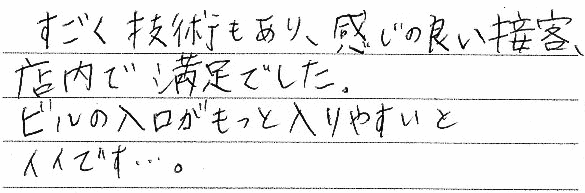 すごく技術もあり、感じの良い接客、
店内で満足でした。
ビルの入口がもっと入りやすいと
イイです…。